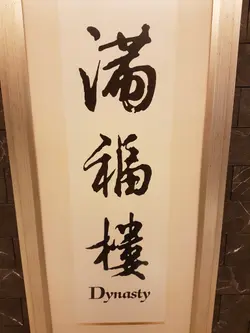 満
福
樓
Dynasty